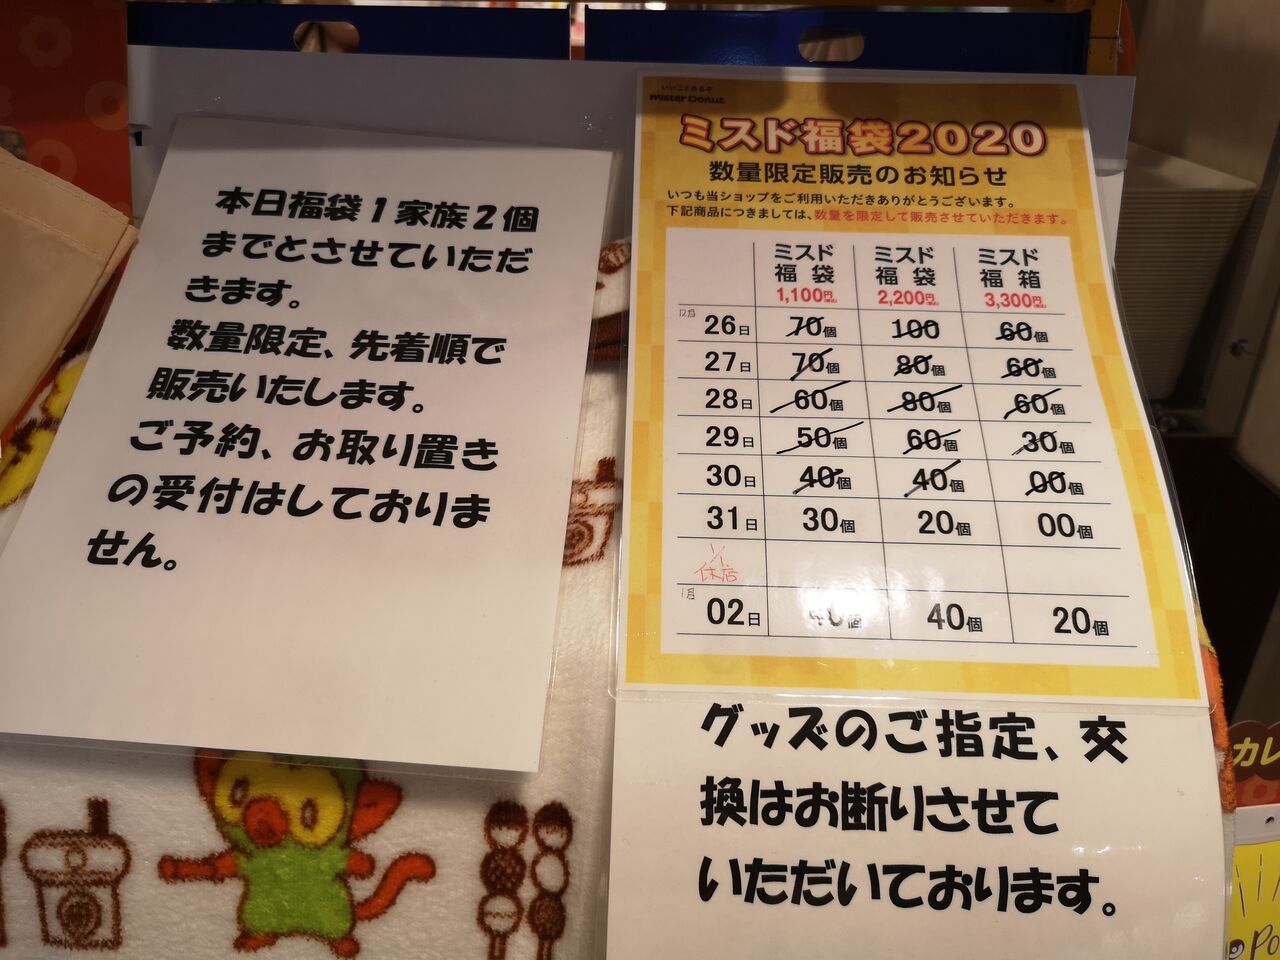 本日福袋1家族2個
までとさせていただ
きます。
数量限定、先着順で
販売いたします。
ご予約、お取り置き
の受付はしておりま
せん。
いいことあるぞ
mister Donut
ミスド福袋2020
数量限定販売のお知らせ
いつも当ショップをご利用いただきありがとうございます。
下記商品につきましては、数量を限定して販売させていただきます。
ミスド福袋 1,100円(税込) ミスド福袋 2,200円(税込) ミスド福箱 3,300円(税込)
12月 26日 70個 100 60個
27日 70個 80個 60個
28日 60個 80個 60個
29日 50個 60個 30個
30日 40個 40個 00個
31日 30個 20個 00個
1/1 休店
1月 02日 40個 40個 20個
グッズのご指定、交
換はお断りさせて
いただいております。
カレ
Po